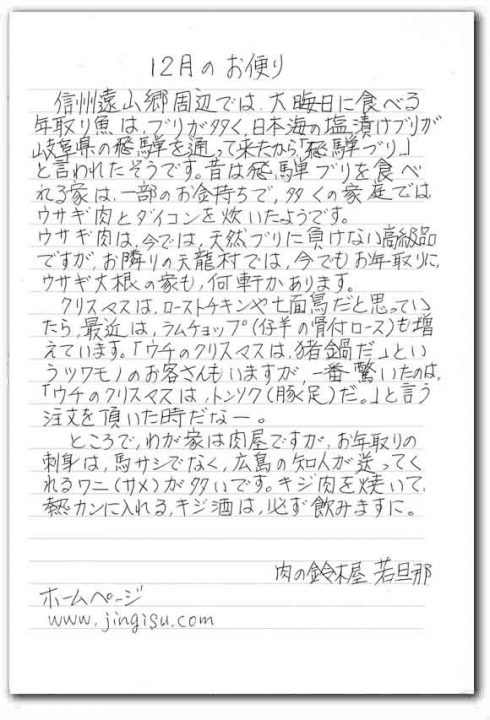 12月のお便り
信州遠山郷周辺では、大晦日に食べる
年取り魚は、ブリが多く、日本海の塩漬けブリが
岐阜県の飛騨を通って来たから「飛騨ブリ」
と言われたそうです。昔は飛騨ブリを食べ
れる家は、一部のお金持ちで、多くの家庭では
ウサギ肉とダイコンを炊いたようです。
ウサギ肉は、今では、天然ブリに負けない高級品
ですが、お隣りの天龍村では、今でもお年取りに、
ウサギ大根の家も、何軒かあります。
クリスマスは、ローストチキンや七面鳥だと思ってい
たら、最近は、ラムチョップ(仔羊の骨付ロース)も増
えています。「ウチのクリスマスは、猪鍋だ」とい
うツワモノのお客さんもいますが、一番驚いたのは、
「ウチのクリスマスは、トンソク(豚足)だ。」と言う
注文を頂いた時だなー。
ところで、わが家は肉屋ですが、お年取りの
刺身は、馬サシでなく、広島の知人が送ってく
れるワニ(サメ)が多いです。キジ肉を焼いて、
熱カンに入れる、キジ酒は、必ず飲みますに。
肉の鈴木屋 若旦那
ホームページ
www.jingisu.com